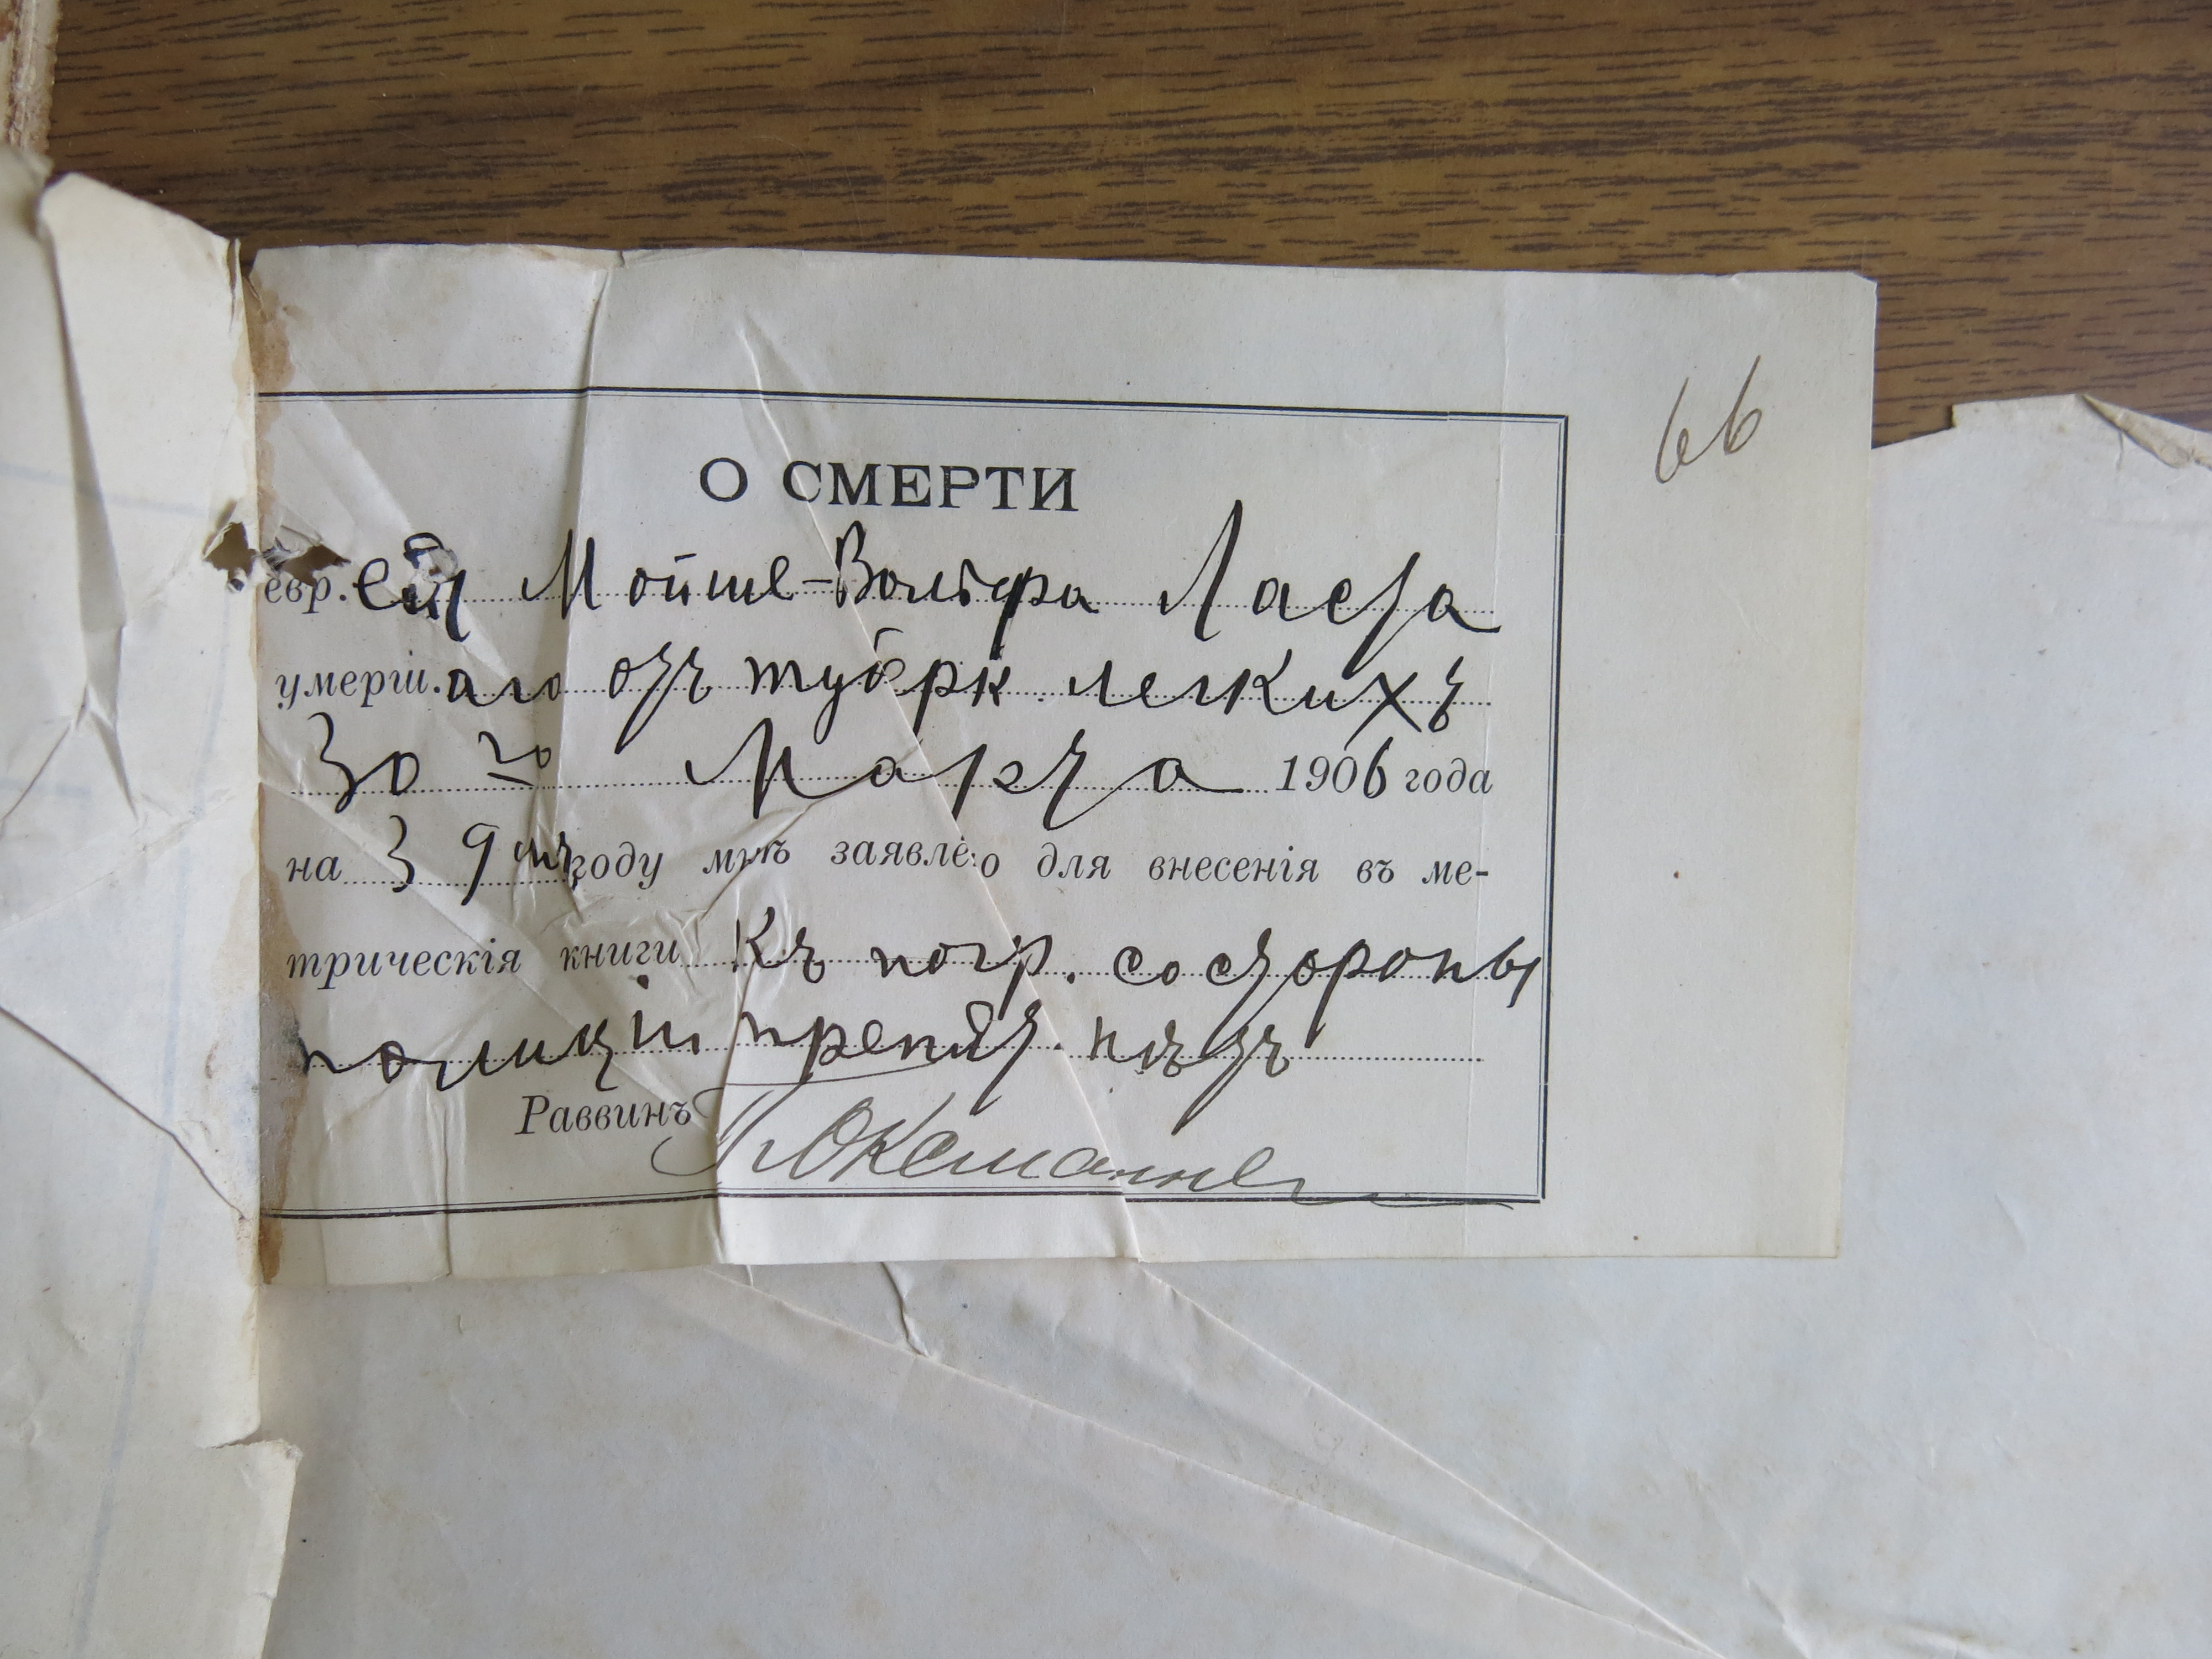 66
О СМЕРТИ
евр.ея Мойше-Вольфа Ласта
умерш.аго отъ тубрк. легкихъ
30го Марта 1906 года
на 39мъ году мнѣ заявлено для внесенія въ ме-
трическія книги Къ погр. со стороны
полиціи препят. нѣтъ
Раввинъ